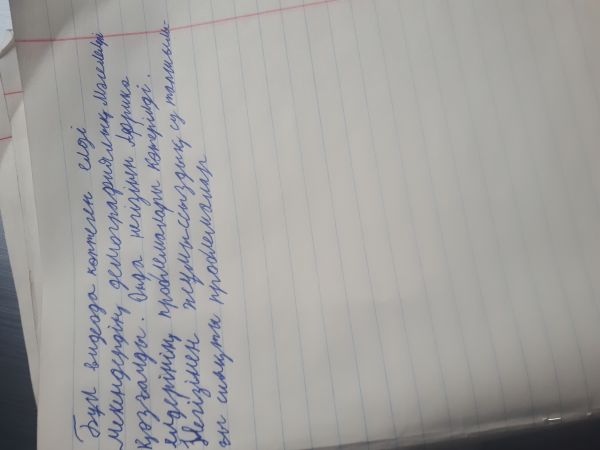 Бұл видеода көптеген елді
мекендердің демографиялық мәселелері
қозғалды. Онда негізінен Африка
елдерінің проблемалары көтерілді.
Негізінен жұмыссыздық, су тапшылы-
ғы сияқты проблемалар